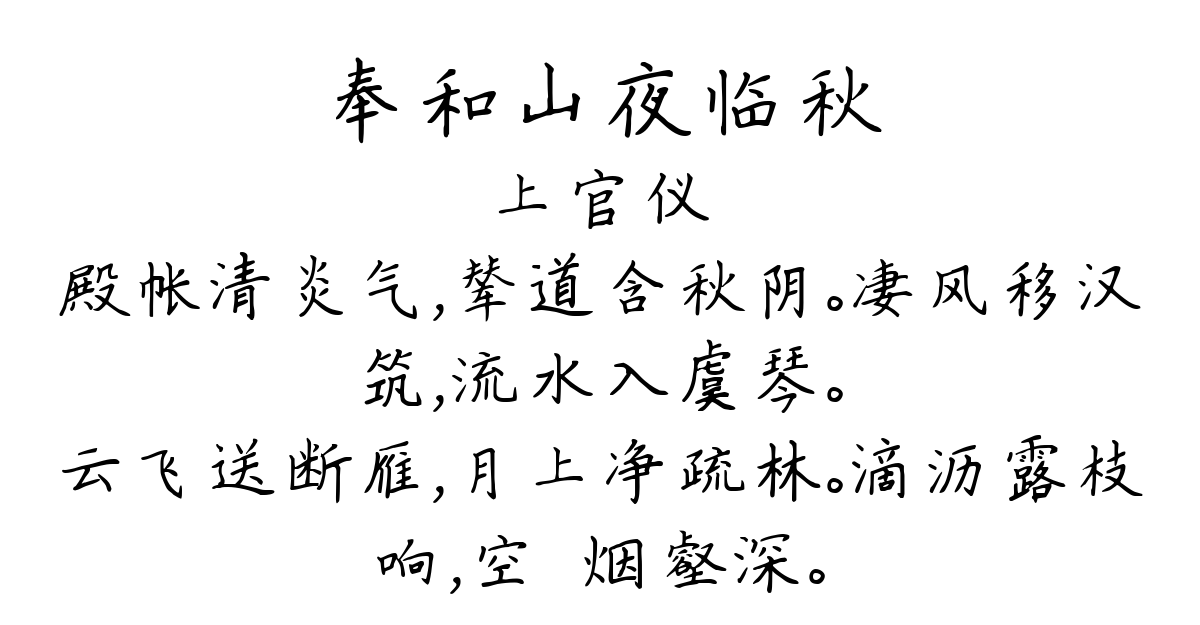 奉和山夜临秋
上官仪
殿帐清炎气,辇道含秋阴。凄风移汉
筑,流水入虞琴。
云飞送断雁,月上净疏林。滴沥露枝
响,空 烟壑深。